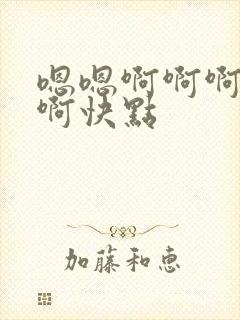 嗯嗯啊啊啊
啊快點
加藤和惠